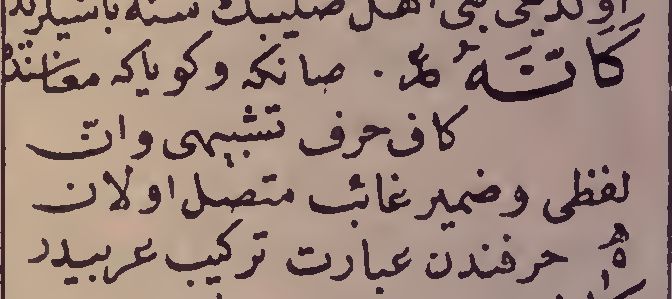 اولديغى بنى اهل صليبك سنه باشيلريدر
كَاَنَّهُ ۰ صانكه وكوياكه معناسنده
كاف حرف تشبيهى وانّ
لفظى وضمير غائب متصل اولان
هُ حرفندن عبارت تركيب عربيدر